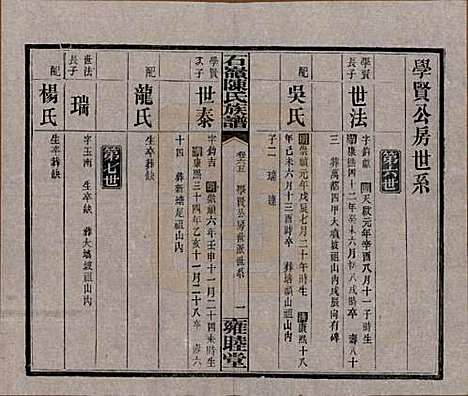 學賢公房世系
第六世
學賢三子 世法
字紹猷 明天啟元年辛酉八月十一子時生
清康熙四十二年癸未六月初八戌時卒 壽八十
三 葬萬都四甲大塘坡祖山內戌辰向有碑
配 吳氏
明崇禎元年戊辰七月二十午時生 清康熙十八
年己未六月十三酉時卒 葬塘尾祖山內
子二 瑞 達
石嶺陳氏族譜
卷之五 學賢公房世派世系 一
雍睦堂
學賢 子 世泰
明崇禎六年壬申十一月二十四未時生
清康熙三十四年乙亥十一月二十八卒 壽六
十四 葬新塘尾祖山內
配 龍氏
生卒葬缺
第七世
世法長子 瑞
字玉南 生卒缺 葬大塘坡祖山內
配 楊氏
生卒葬缺